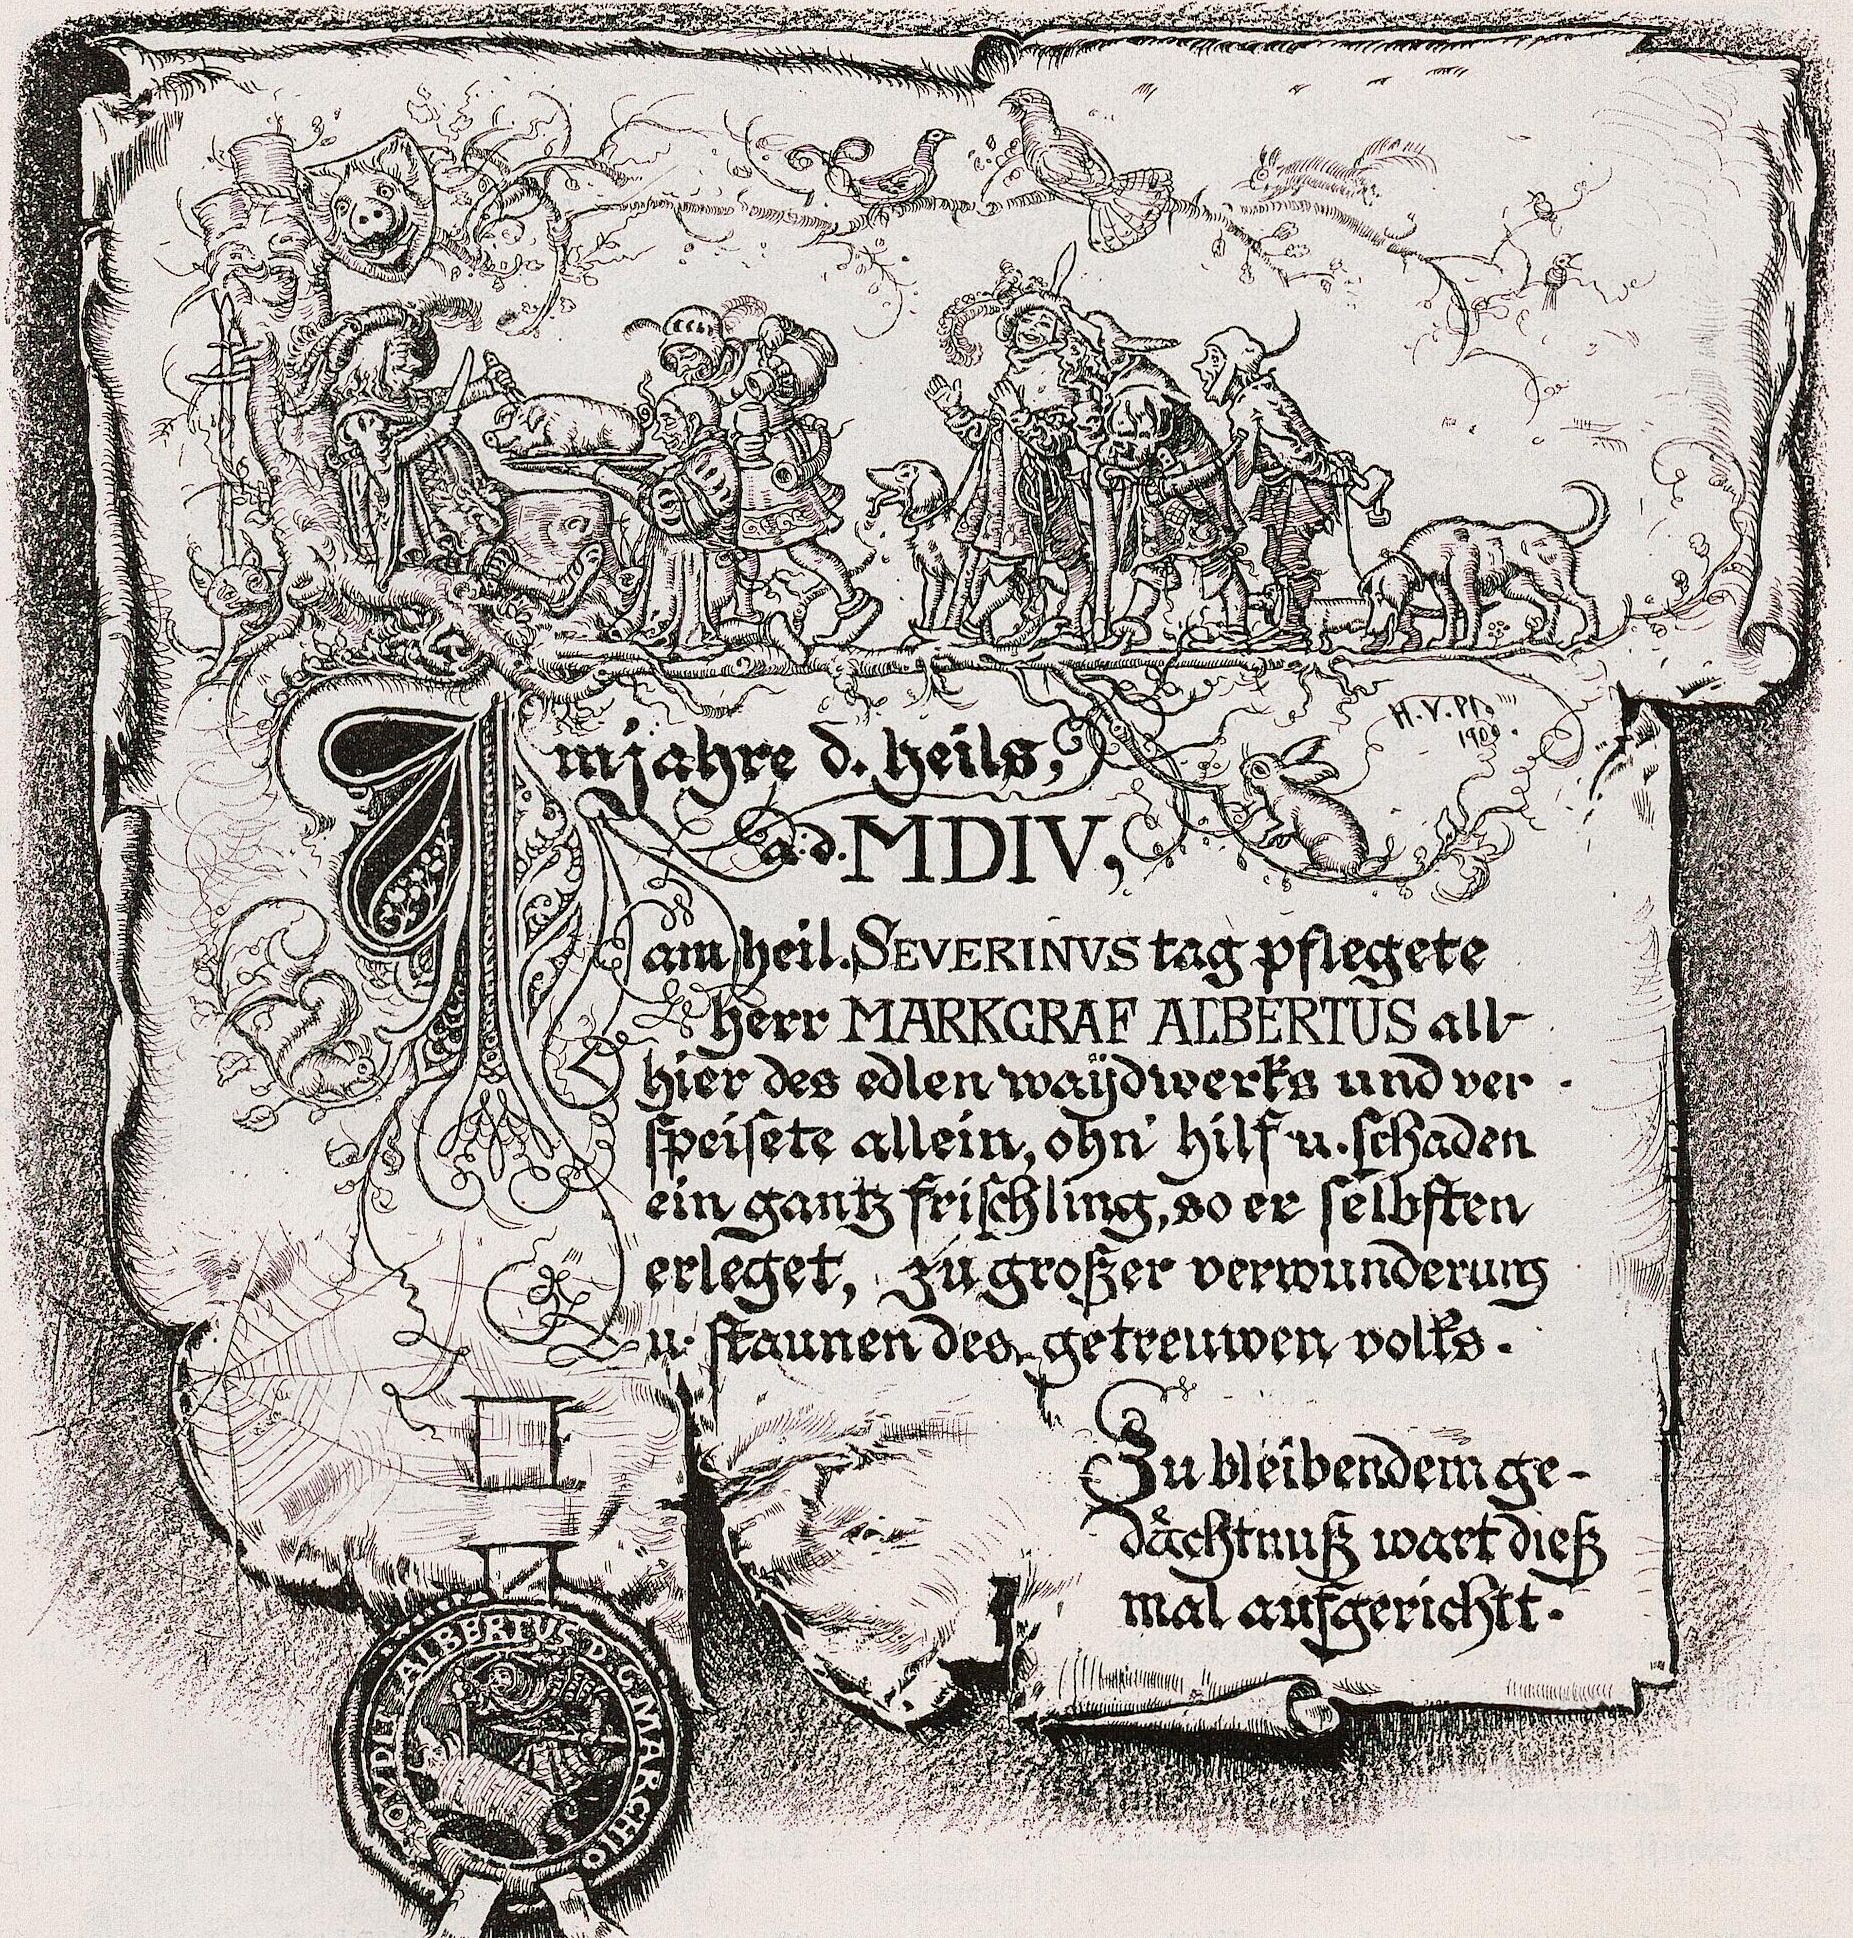 H. V. Pf.
1900.
Imjahre d. heils,
a.d. MDIV,
am heil. SEVERINVS tag pflegete
herr MARKGRAF ALBERTUS all-
hier des edlen waÿdwerks und ver-
speisete allein, ohn' hilf u. schaden
ein gantz frischling, so er selbsten
erleget, zu großer verwunderung
u. staunen des getreuwen volks.
Zu bleibendem ge-
dächtnuß wart dieß
mal aufgerichtt.
ALBERTVS D. G. MARCHIO